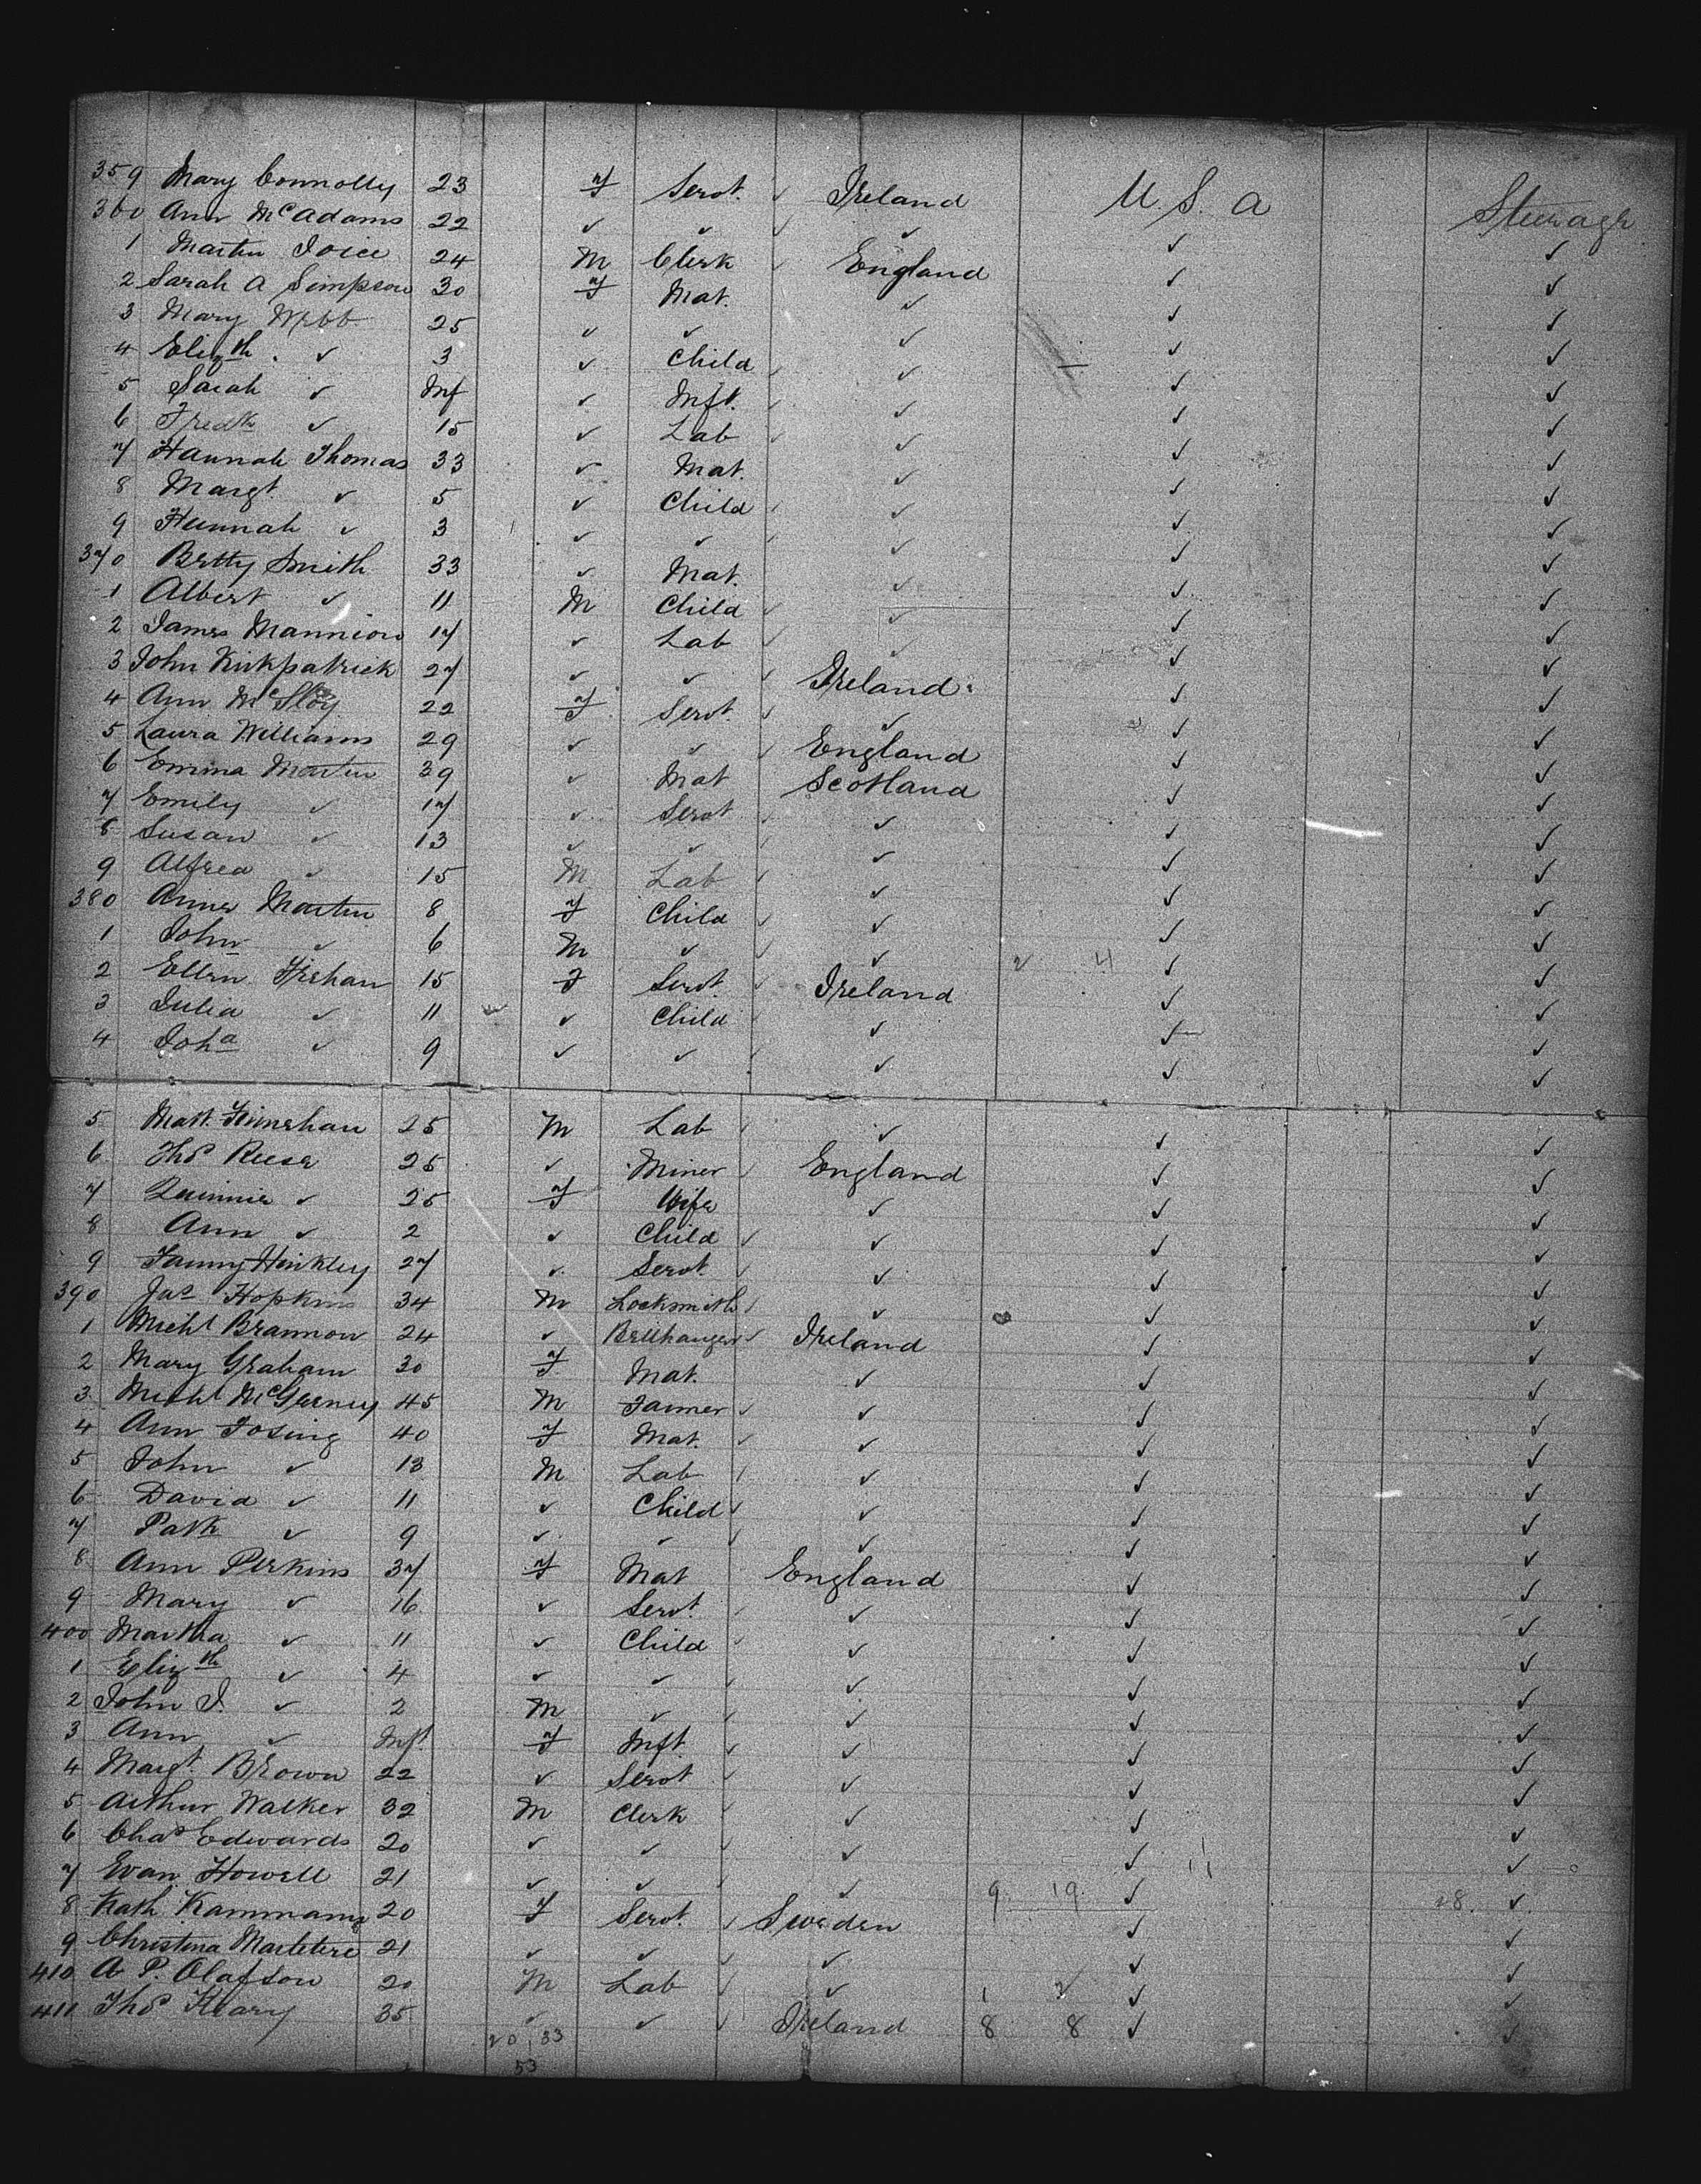 359 Mary Connolly 23 F Servt. ✓ Ireland U.S.A Steerage
360 Ann McAdams 22 ✓ ✓ ✓ ✓ ✓ ✓
1 Martin Joice 24 M Clerk ✓ England ✓ ✓
2 Sarah A Simpson 30 F Mat. ✓ ✓ ✓
3 Mary Webb 25 ✓ ✓ ✓ ✓ ✓
4 Elizth. ✓ 3 ✓ Child ✓ ✓ ✓
5 Sarah ✓ Inf ✓ Inft. ✓ ✓ ✓ ✓
6 Fredk ✓ 15 ✓ Lab ✓ ✓ ✓ ✓
7 Hannah Thomas 33 ✓ Mat. ✓ ✓ ✓
8 Margt. ✓ 5 ✓ Child ✓ ✓ ✓ ✓
9 Hannah ✓ 3 ✓ ✓ ✓ ✓ ✓ ✓
370 Betty Smith 33 ✓ Mat. ✓ ✓ ✓
1 Albert ✓ 11 M Child ✓ ✓ ✓ ✓
2 James Mannion 17 ✓ Lab ✓ ✓ ✓ ✓
3 John Kirkpatrick 27 ✓ ✓ ✓ Ireland ✓ ✓
4 Ann McSloy 22 F Servt. ✓ ✓ ✓ ✓
5 Laura Williams 29 ✓ ✓ ✓ England ✓ ✓
6 Emma Martin 39 ✓ Mat Scotland ✓ ✓
7 Emily ✓ 17 ✓ Servt ✓ ✓ ✓ ✓
8 Susan ✓ 13 ✓ ✓ ✓ ✓ ✓ ✓
9 Alfred ✓ 15 M Lab ✓ ✓ ✓ ✓
380 Annes Martin 8 F Child ✓ ✓ ✓ ✓
1 John ✓ 6 M ✓ ✓ ✓ 2 4 ✓ ✓
2 Ellen 15 F Servt. ✓ Ireland ✓ ✓
3 Julia ✓ 11 ✓ Child ✓ ✓ ✓ ✓
4 Joha ✓ 9 ✓ ✓ ✓ ✓ ✓ ✓
5 Matt. 25 M Lab ✓ ✓ ✓ ✓
6 Thos Reese 25 ✓ Miner ✓ England ✓ ✓
7 ✓ 25 F Wife ✓ ✓ ✓
8 Ann ✓ 2 ✓ Child ✓ ✓ ✓ ✓
9 Fanny Hinkley 27 ✓ Servt. ✓ ✓ ✓ ✓
390 Jas Hopkins 34 M Locksmith ✓ ✓ ✓ ✓
1 Michl Brannon 24 ✓ Bellhanger ✓ Ireland ✓ ✓
2 Mary Graham 30 F Mat. ✓ ✓ ✓
3 Michl 45 M Farmer ✓ ✓ ✓ ✓
4 Ann Tosing 40 F Mat. ✓ ✓ ✓ ✓
5 John ✓ 13 M Lab ✓ ✓ ✓ ✓
6 David ✓ 11 ✓ Child ✓ ✓ ✓ ✓
7 Patk ✓ 9 ✓ ✓ ✓ ✓ ✓ ✓
8 Ann Perkins 37 F Mat England ✓ ✓
9 Mary ✓ 16 ✓ Servt. ✓ ✓ ✓ ✓
400 Martha ✓ 11 ✓ Child ✓ ✓ ✓ ✓
1 Elizth ✓ 4 ✓ ✓ ✓ ✓ ✓ ✓
2 John J. ✓ 2 M ✓ ✓ ✓ ✓ ✓
3 Ann ✓ Inft F Inft ✓ ✓ ✓ ✓
4 Margt. Brown 22 ✓ Servt ✓ ✓ ✓ ✓
5 Arthur Walker 32 M Clerk ✓ ✓ ✓ ✓
6 Chas Edwards 20 ✓ ✓ ✓ ✓ ✓ ✓
7 Evan Howell 21 ✓ ✓ ✓ ✓ 9 19 ✓ ✓
8 Kath 20 F Servt. ✓ Sweden ✓ ✓
9 Christina 21 ✓ ✓ ✓ ✓ ✓ ✓
410 A P. Olafson 20 M Lab ✓ ✓ 1 2 ✓ ✓
411 Thos Keary 35 ✓ ✓ ✓ Ireland 8 8 ✓ ✓
20 33
53